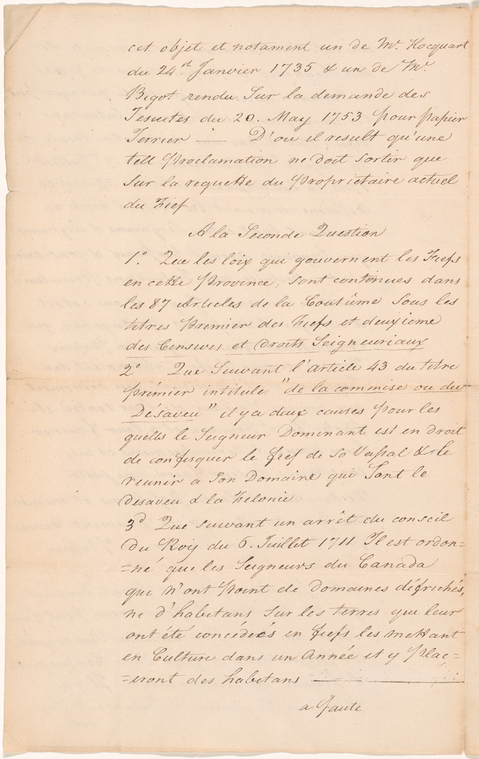 cet objet et notament un de Mr. Hocquart
du 24et Janvier 1735 & un de Mr.
Bigot rendu Sur la demande des
Jesuites du 20. May 1753 pour papier
Terrier —— D'ou il result qu'une
tell Proclamation ne doit sortir que
Sur la requette du Proprietaire actuel
du Fief
A la Seconde Question
1.o Que les loix qui gouvernent les Fiefs
en cette Province, sont contenues dans
les 87 Articles de la Coutûme Sous les
titres Premier des Fiefs et deuxieme
des Censives et Droits Seigneuriaux
2o Que Suivant l'Article 43 du titre
premier intitulé "de la commise ou du
Desaveu" il y a deux causes pour les
quells le Seigneur Dominant est en droit
de confisquer le fief de So Vassal & le
reunir a Son Domaine qui Sont le
desaveu & la Felonie
3d Que suivant un arrêt du conseil
du Roy du 6. Juillet 1711 Il est ordon-
=né que les Seigneurs du Canada
que n'ont Point de Domaines défrichés,
ne d'habitans Sur les terres que leur
ont été concédiés en fiefs les mettant
en Culture dans un Année et y Plac-
=eront des habitans ——
a faute